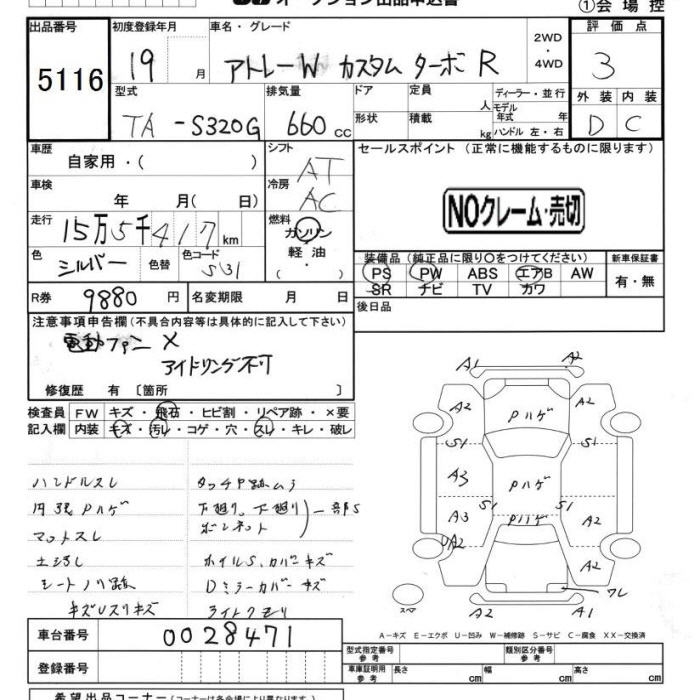 オークション出品申込書
①会場控
出品番号
初度登録年月
車名・グレード
2WD・4WD
評価点
5116
19 月
アトレーW カスタム ターボ R
3
型式
排気量
ドア
定員
人
ディーラー・並行
外装
内装
TA-S320G
660 cc
形状
積載
kg
モデル年式 年
ハンドル 左・右
D
C
車歴
自家用・( )
シフト
AT
セールスポイント(正常に機能するものに限ります)
車検
年 月( 日)
冷房
AC
NOクレーム・売切
走行
15万5千417 km
燃料
ガソリン
軽油
・( )
色
シルバー
色替
色コード
S31
装備品(純正品に限り○をつけてください)
新車保証書
PS PW ABS エアB AW
SR ナビ TV カワ
有・無
R券
9880 円
名変期限 月 日
後日品
注意事項申告欄(不具合内容等は具体的に記入して下さい)
電動ファン ×
アイドリング不可
修復歴 有〔箇所 〕
検査員
記入欄
FW キズ・飛石・ヒビ割・リペア跡・×要
内装 キズ・汚レ・コゲ・穴・スレ・キレ・破レ
ハンドルスレ
タッチP跡ムラ
内張Pハゲ
下廻り、下廻り
ボンネット
一部S
マットスレ
ホイルS、カバーキズ
シートノリ跡
Dミラーカバーキズ
キズUスリキズ
ライトクモリ
A1
A2
A2
Pハゲ
A2
S1
S1
A3
Pハゲ
A3
S1
Pハゲ
S1
A2
UA2
A2
ワレ
スペア
A2
A1
A-キズ E-エクボ U-凹み W-補修跡 S-サビ C-腐食 XX-交換済
車台番号
0028471
型式指定番号
参考
類別区分番号
参考
登録番号
車庫証明用
参考
長さ cm
幅 cm
高さ cm
希望出品コーナー